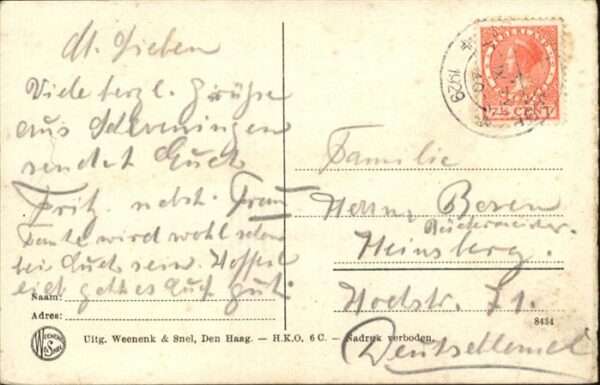 M. Lieben
Viele herzl. Grüße
aus Scheveningen
sendet Euch
Fritz nebst Frau
Tante wird wohl schon
bei Euch sein. Hoffentl
geht es Euch gut.
Naam:
Adres:
NEDERLAND
7½ CENT
1928
Familie
Herrn Beren
Bäckermeister
Heinsberg.
Hochstr. 71.
Deutschland
8434
WEENENK & SNEL
Uitg. Weenenk & Snel, Den Haag. — H.K.O. 6 C. — Nadruk verboden.